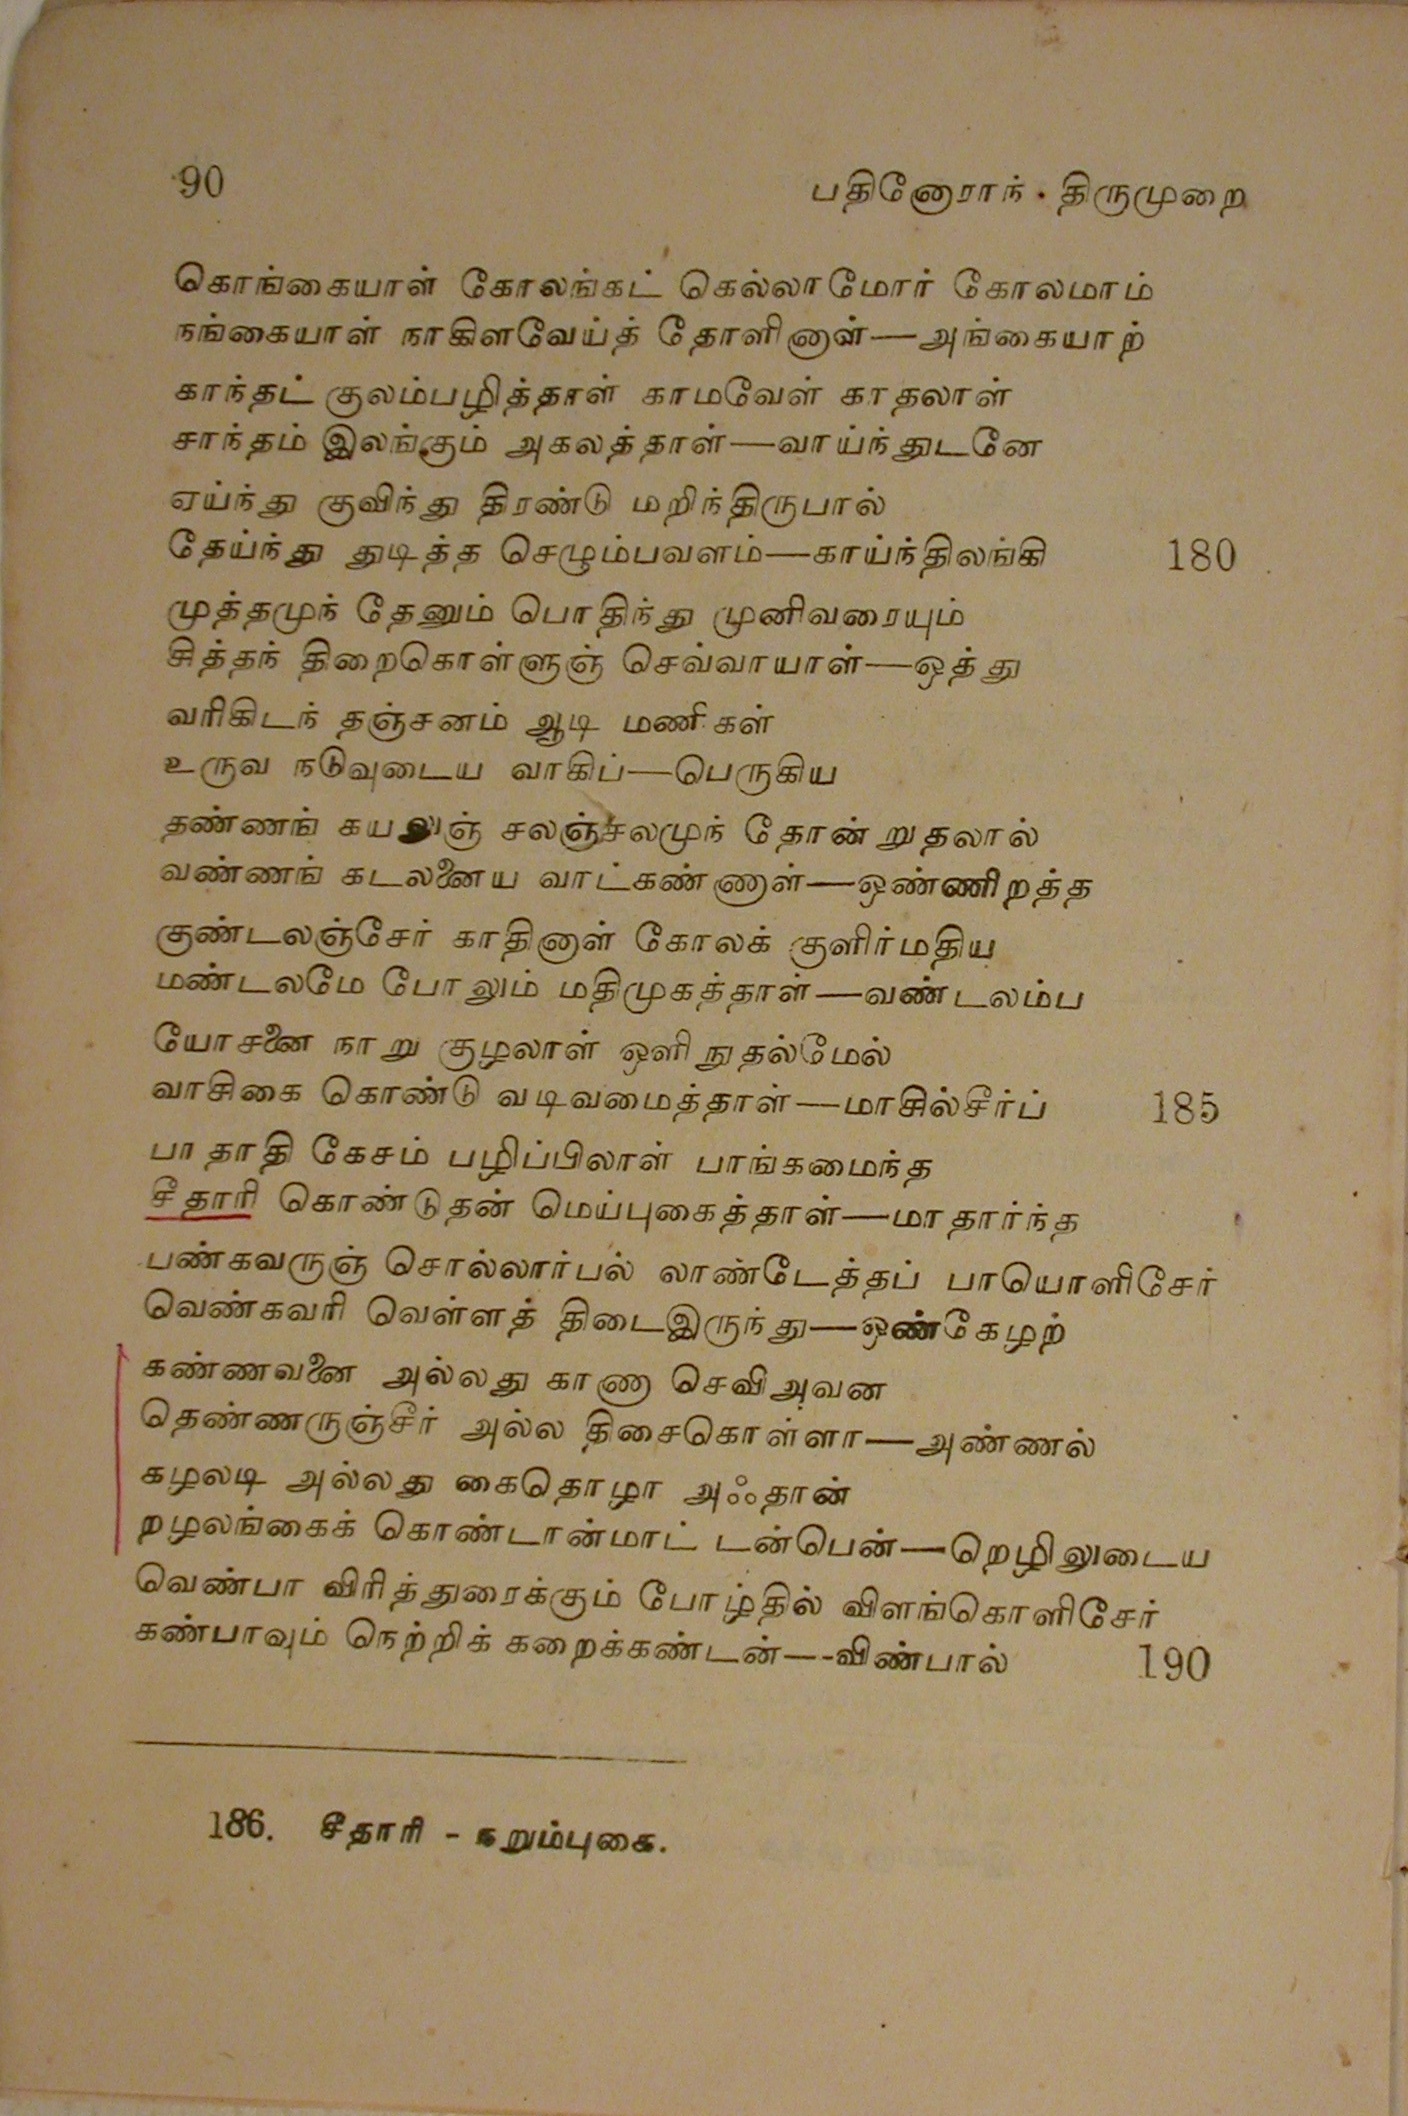 90
பதினோராந் திருமுறை
கொங்கையாள் கோலங்கட் கெல்லாமோர் கோலமாம்
நங்கையாள் நாகிளவேய்த் தோளினாள்—அங்கையாற்
காந்தட் குலம்பழித்தாள் காமவேள் காதலாள்
சாந்தம் இலங்கும் அகலத்தாள்—வாய்ந்துடனே
ஏய்ந்து குவிந்து திரண்டு மறிந்திருபால்
தேய்ந்து துடித்த செழும்பவளம்—காய்ந்திலங்கி 180
முத்தமுந் தேனும் பொதிந்து முனிவரையும்
சித்தந் திறைகொள்ளுஞ் செவ்வாயாள்—ஒத்து
வரிகிடந் தஞ்சனம் ஆடி மணிகள்
உருவ நடுவுடைய வாகிப்—பெருகிய
தண்ணங் கயலுஞ் சலஞ்சலமுந் தோன்றுதலால்
வண்ணங் கடலனைய வாட்கண்ணாள்—ஒண்ணிறத்த
குண்டலஞ்சேர் காதினாள் கோலக் குளிர்மதிய
மண்டலமே போலும் மதிமுகத்தாள்—வண்டலம்ப
யோசனை நாறு குழலாள் ஒளிநுதல்மேல்
வாசிகை கொண்டு வடிவமைத்தாள்—மாசில்சீர்ப் 185
பாதாதி கேசம் பழிப்பிலாள் பாங்கமைந்த
சீதாரி கொண்டுதன் மெய்புகைத்தாள்—மாதார்ந்த
பண்கவருஞ் சொல்லார்பல் லாண்டேத்தப் பாயொளிசேர்
வெண்கவரி வெள்ளத் திடைஇருந்து—ஒண்கேழற்
கண்ணவனை அல்லது காணா செவிஅவன
தெண்ணருஞ்சீர் அல்ல திசைகொள்ளா—அண்ணல்
கழலடி அல்லது கைதொழா அஃதான்
றழலங்கைக் கொண்டான்மாட் டன்பென்—றெழிலுடைய
வெண்பா விரித்துரைக்கும் போழ்தில் விளங்கொளிசேர்
கண்பாவும் நெற்றிக் கறைக்கண்டன்—-விண்பால் 190
186. சீதாரி - நறும்புகை.